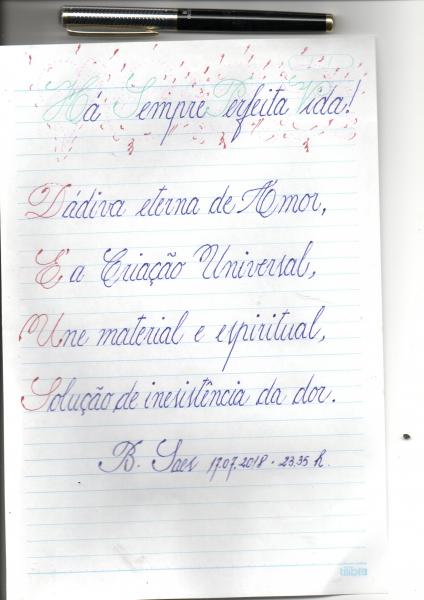 Há Sempre Perfeita Vida!
Dádiva eterna de Amor,
É a Criação Universal,
Une material e espiritual,
Solução de inesistência da dor.
B. Saes 17.07.2018 - 23.35 h.